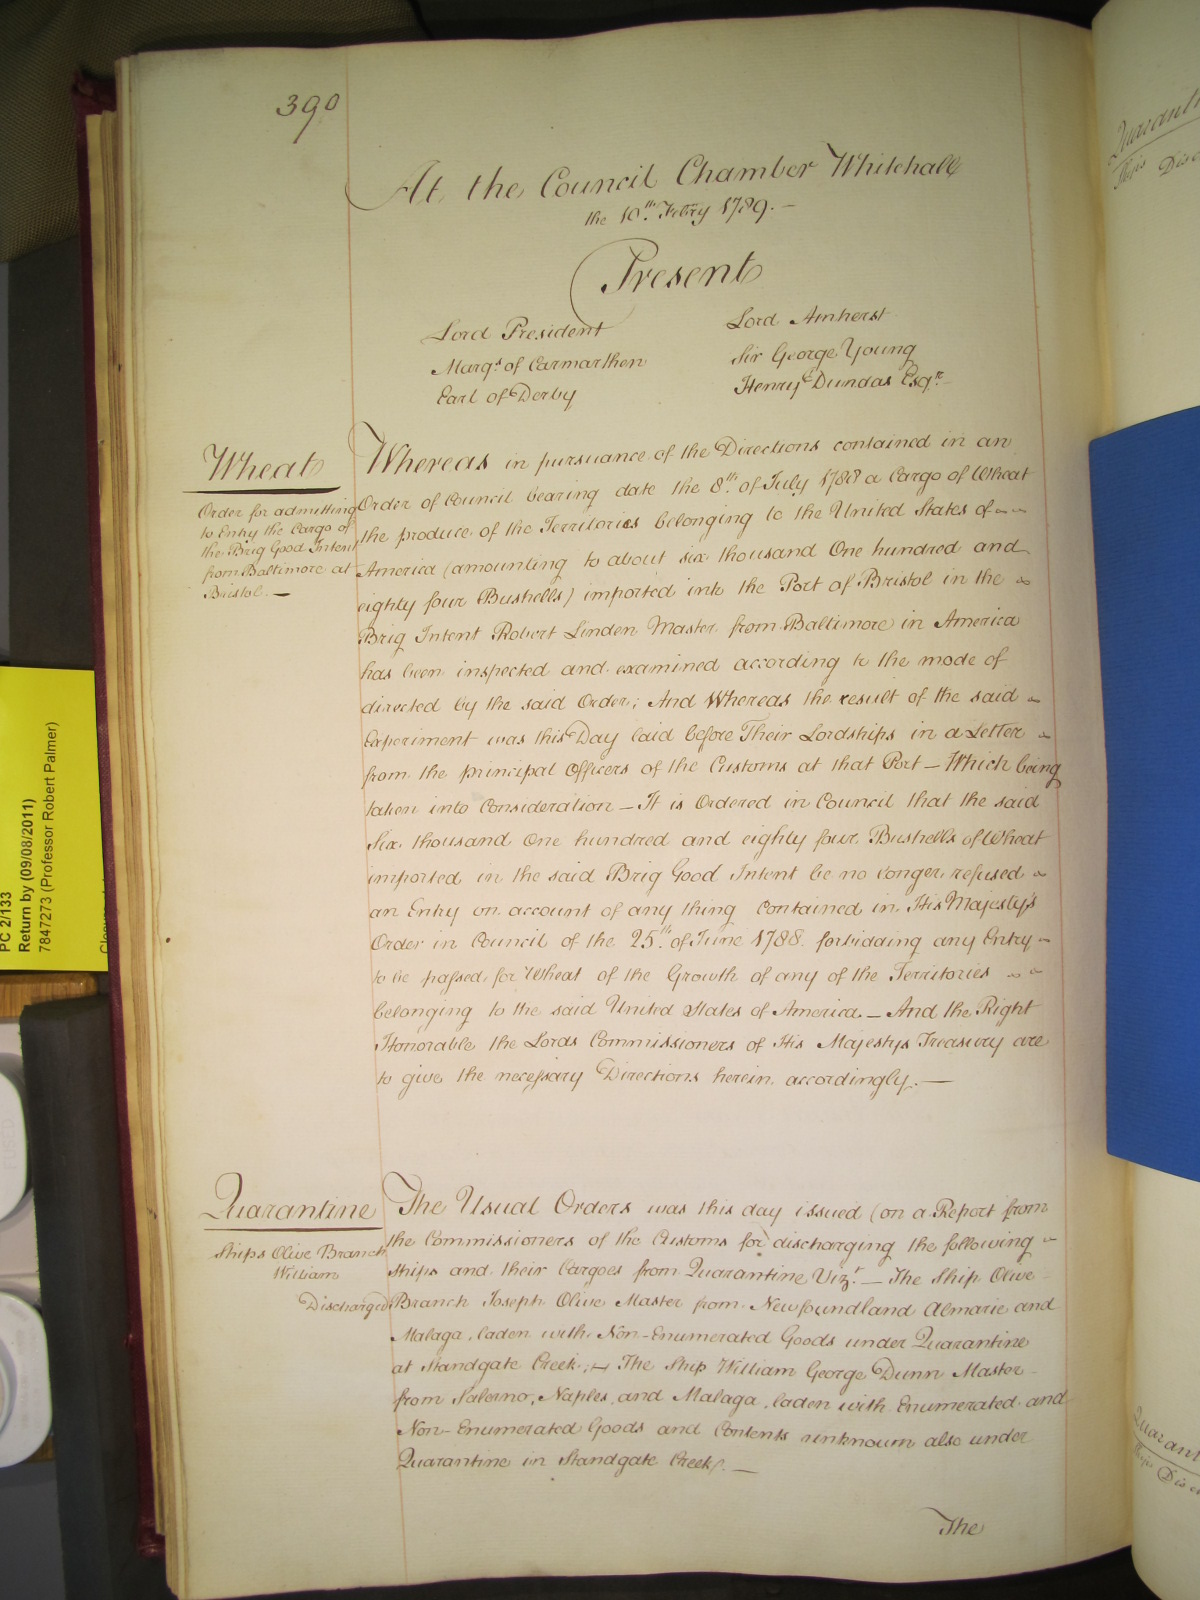 390
At the Council Chamber Whitehall
the 10th. Febry 1789. —
Present
Lord President
Marqs. of Carmarthen
Earl of Derby
Lord Amherst
Sir George Young
Henry Dundas Esqr.
Wheat
Order for admitting
to Entry the Cargo of
the Brig Good Intent
from Baltimore at
Bristol. —
Whereas in pursuance of the Directions contained in an
Order of Council bearing date the 8th. of July 1788 a Cargo of Wheat
the produce of the Territories belonging to the United States of
America (amounting to about six thousand One hundred and
eighty four Bushells) imported into the Port of Bristol in the
Brig Intent Robert Linden Master from Baltimore in America
has been inspected and examined according to the mode of
directed by the said Order; And Whereas the result of the said
Experiment was this Day laid before Their Lordships in a Letter
from the principal Officers of the Customs at that Port — Which being
taken into Consideration — It is Ordered in Council that the said
Six thousand One hundred and eighty four Bushells of Wheat
imported in the said Brig Good Intent be no longer refused
an Entry on account of any thing contained in His Majesty's
Order in Council of the 25th. of June 1788 forbidding any Entry
to be passed for Wheat of the Growth of any of the Territories
belonging to the said United States of America. — And the Right
Honorable the Lords Commissioners of His Majestys Treasury are
to give the necessary Directions herein accordingly. —
Quarantine
Ships Olive Branch
William
Discharged
The Usual Orders was this day issued (on a Report from
the Commissioners of the Customs for discharging the following
Ships and their Cargoes from Quarantine Vizt. — The Ship Olive
Branch Joseph Olive Master from Newfoundland Almarie and
Malaga, laden with Non-Enumerated Goods under Quarantine
at Standgate Creek; — The Ship William George Dunn Master
from Salerno, Naples, and Malaga, laden with Enumerated and
Non-Enumerated Goods and Contents unknown also under
Quarantine in Standgate Creek. —
The
PC 2/133
Return by (09/08/2011)
7847273 (Professor Robert Palmer)